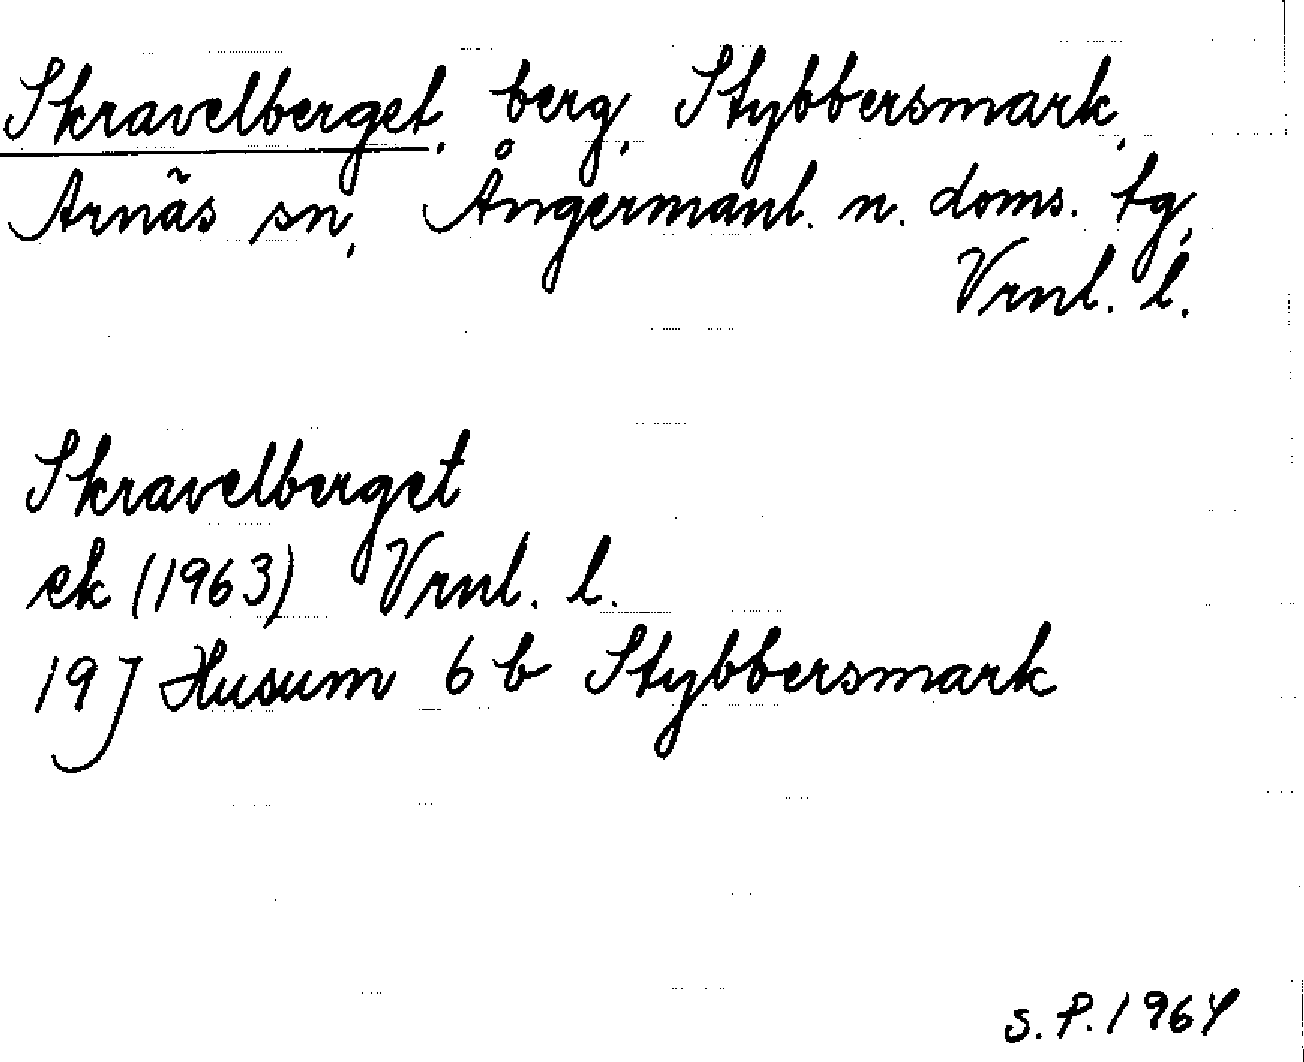 Skravelberget, berg, Stybbersmark,
Arnäs sn, Ångermanl. n. doms. tg,
Vrnl. l.
Skravelberget
ek (1963) Vrnl. l.
19J Husum 6 b Stybbersmark
S.P. 1964